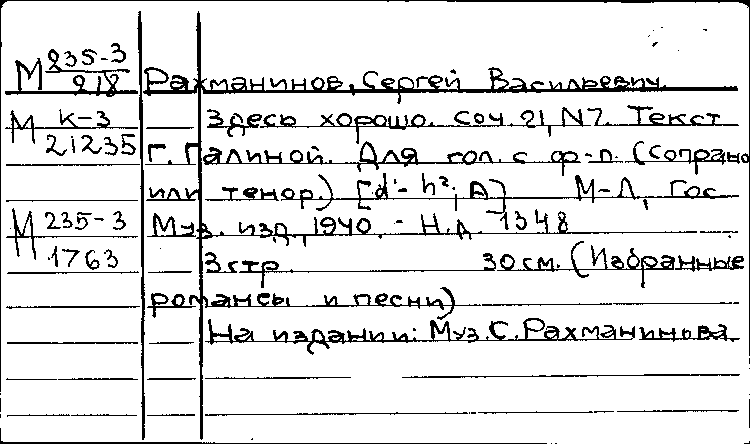 М 235-3/218 Рахманинов, Сергей Васильевич.
М К-3/21235 Здесь хорошо. Соч. 21, N7. Текст
Г. Галиной. Для гол. с ф-п. (сопрано
или тенор.) [d'- h²; A] М-Л, Гос
М 235-3/1763 Муз. изд., 1940. - Н.д. 1348
3 стр. 30 см. (Избранные
романсы и песни)
На издании: Муз. С. Рахманинова